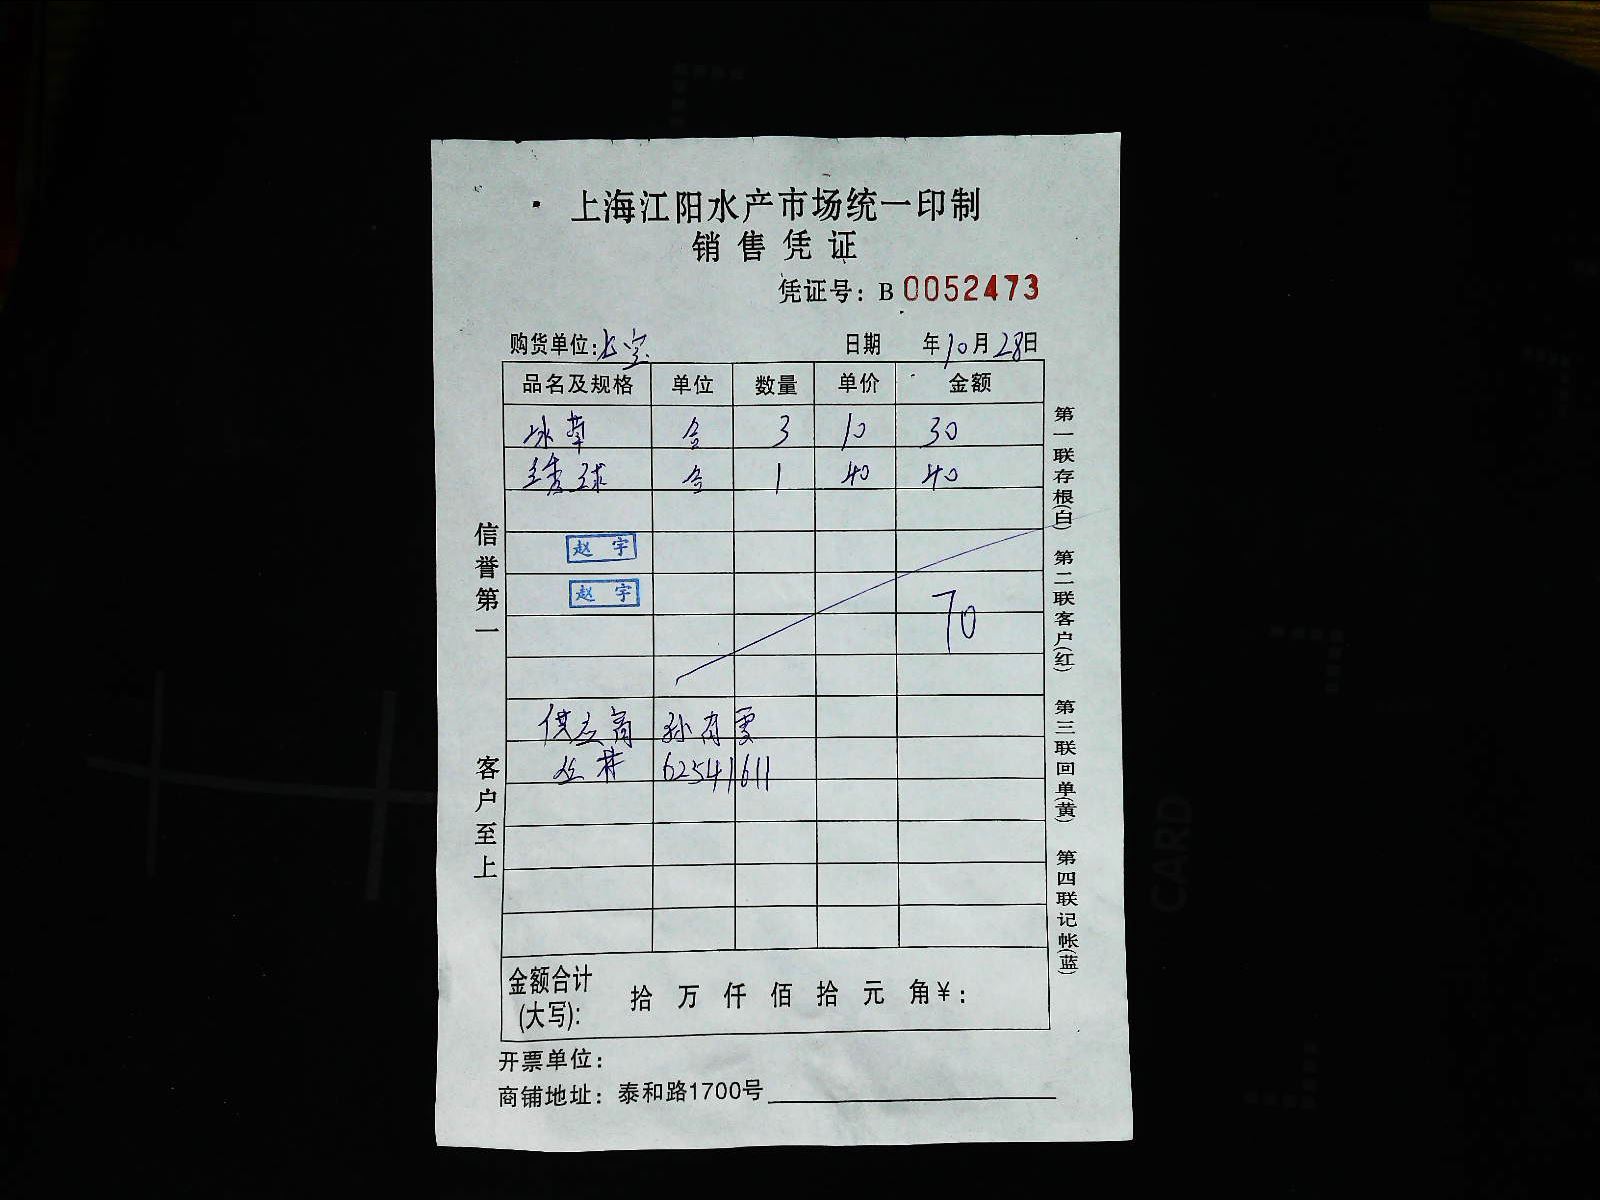 上海江阳水产市场统一印制
销售凭证
凭证号：B 0052473
购货单位: 日期 年10月28日
品名及规格 单位 数量 单价 金额
冰草 盒 3 10 30
绣球 盒 1 40 40
赵宇
赵宇
70
供应商 孙有雯
62541611
金额合计(大写): 拾 万 仟 佰 拾 元 角¥：
开票单位：
商铺地址：泰和路1700号
信誉第一
客户至上
第一联存根(白)
第二联客户(红)
第三联回单(黄)
第四联记帐(蓝)
CARD